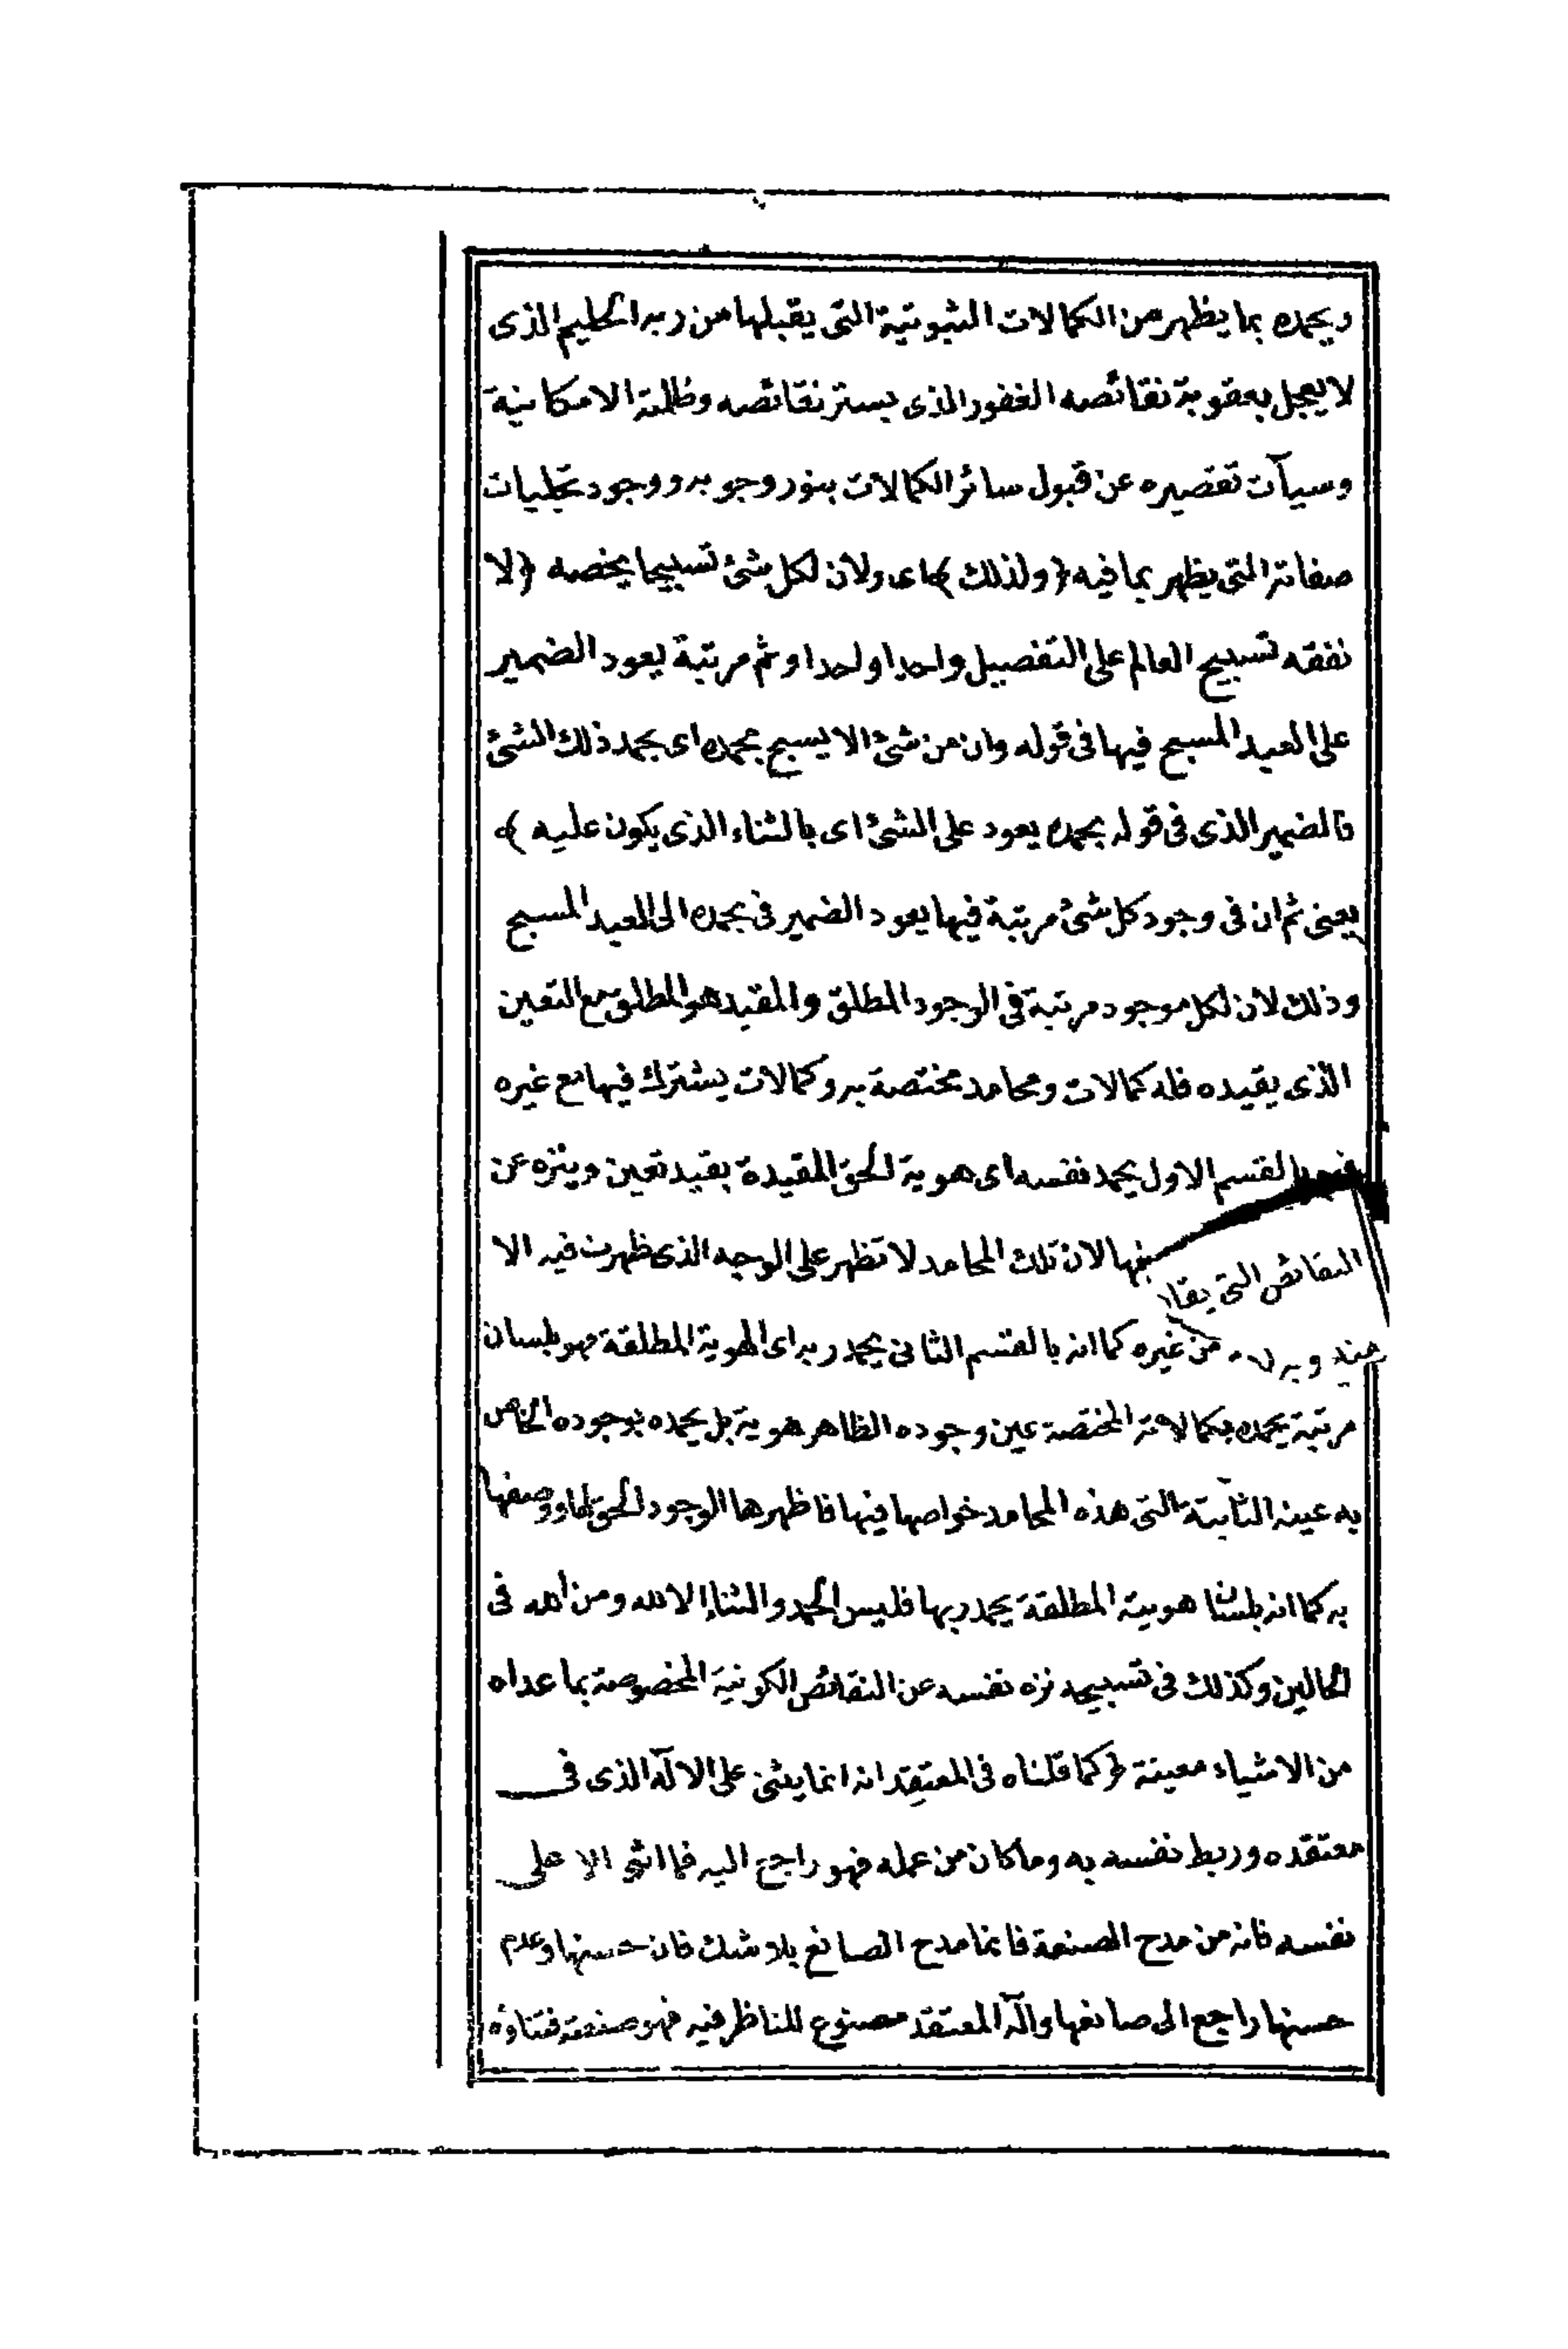 ويحمده بما يظهر من الكمالات الثبوتية التى يقبلها من ربه الحليم الذى
لا يعجل بعقوبة نقائصه الغفور الذى يستر نقائصه وظلمة الامكانية
وسيآت تقصيره عن قبول سائر الكمالات بنور وجوبه ووجود تجليات
صفاته التى يظهر بما فيه ﴿ ولذلك ﴾ اى ولان لكل شئ تسبيحا يخصه ﴿ لا
نفقه تسبيح العالم على التفصيل واحدا واحدا وثم مرتبة يعود الضمير
على العبد المسبح فيها فى قوله وان من شئ الا يسبح بحمده اى بحمد ذلك الشئ
فالضمير الذى فى قوله بحمده يعود على الشئ اى بالثناء الذى يكون عليه ﴾
يعنى ثم ان فى وجود كل شئ مرتبة فيها يعود الضمير فى بحمده الى العبد المسبح
وذلك لان لكل موجود مرتبة فى الوجود المطلق والمقيد هو المطلق مع التعين
الذى يقيده فله كمالات ومحامد مختصة به وكمالات يشترك فيها مع غيره
بالقسم الاول يحمد نفسه اى هوية الحق المقيدة بقيد تعين وينزه عن
النقائص التى لان تلك المحامد لا تظهر على الوجه الذى ظهرت فيه الا
من غيره كما انه بالقسم الثانى يحمد ربه اى الهوية المطلقة فهو بلسان
مرتبة يحمده بكمالاته المختصة عين وجوده الظاهر هوية بل يحمده بوجوده الخاص
به عينه الثابتة التى هذه المحامد خواصها فيها فاظهرها الوجود الحق لها ووصفها
به كما انه بلسان هويته المطلقة يحمد ربها فليس الحمد والثناء الا لله ومن الله فى
الحالين وكذلك فى تسبيحه نزه نفسه عن النقائص الكونية المخصوصة بما عداه
من الاشياء معينة ﴿ كما قلناه فى المعتقد انه انما يثنى على الاله الذى فى
معتقده وربط نفسه به وما كان من عمله فهو راجع اليه فما اثنى الا على
نفسه فانه من مدح الصنعة فانما مدح الصانع بلا شك فان حسنها وعدم
حسنها راجع الى صانعها واله المعتقد مصنوع للناظر فيه فهو صنعته فثناؤه